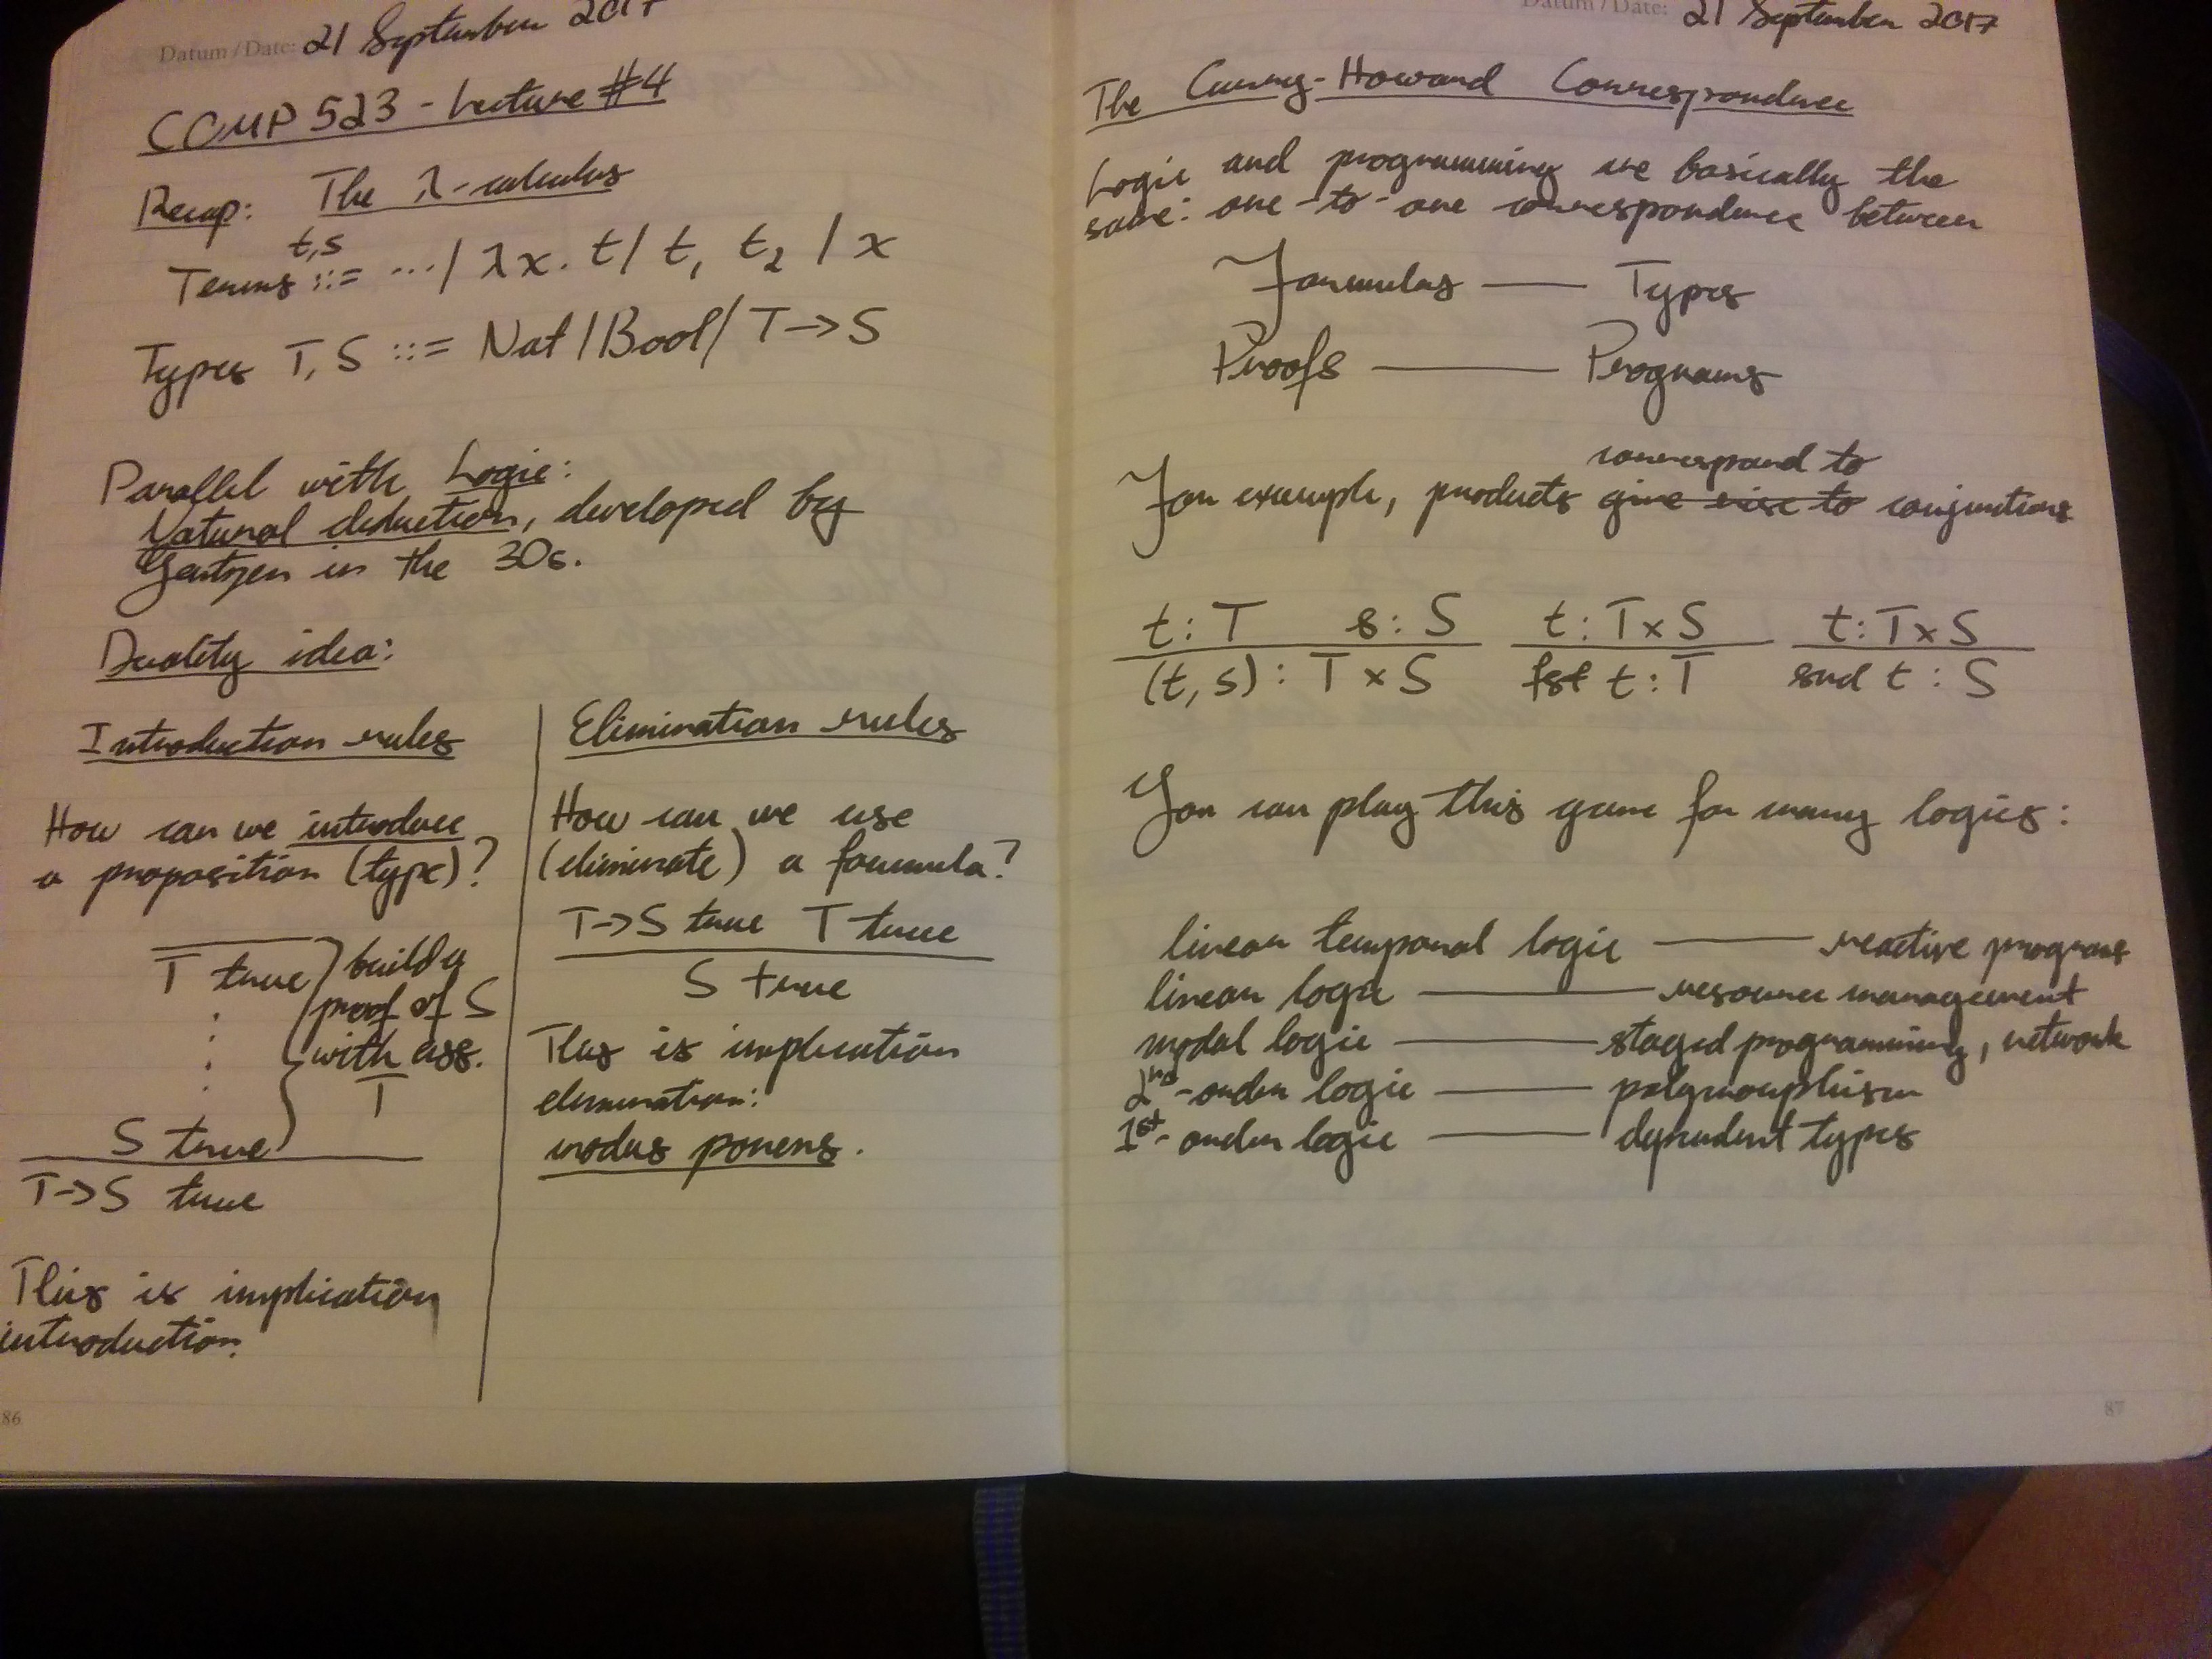 Datum / Date: 21 September 2017
COMP 523 - Lecture #4
Recap: The λ-calculus
t,s
Terms ::= ... / λx. t / t₁ t₂ / x
Types T, S ::= Nat / Bool / T -> S
Parallel with Logic:
Natural deduction, developed by
Gentzen in the 30s.
Duality idea:
Introduction rules
How can we introduce
a proposition (type)?
T true
build a
proof of S
with ass.
T
S true
T -> S true
This is implication
introduction.
Elimination rules
How can we use
(eliminate) a formula?
T -> S true T true
S true
This is implication
elimination:
modus ponens.
86
Datum / Date: 21 September 2017
The Curry-Howard Correspondence
Logic and programming are basically the
same: one-to-one correspondence between
Formulas — Types
Proofs — Programs
correspond to
For example, products give rise to conjunctions
t : T s : S
(t, s) : T x S
t : T x S
fst t : T
t : T x S
snd t : S
You can play this game for many logics:
linear temporal logic — reactive programs
linear logic — resource management
modal logic — staged programming, network
2nd-order logic — polymorphism
1st-order logic — dependent types
87